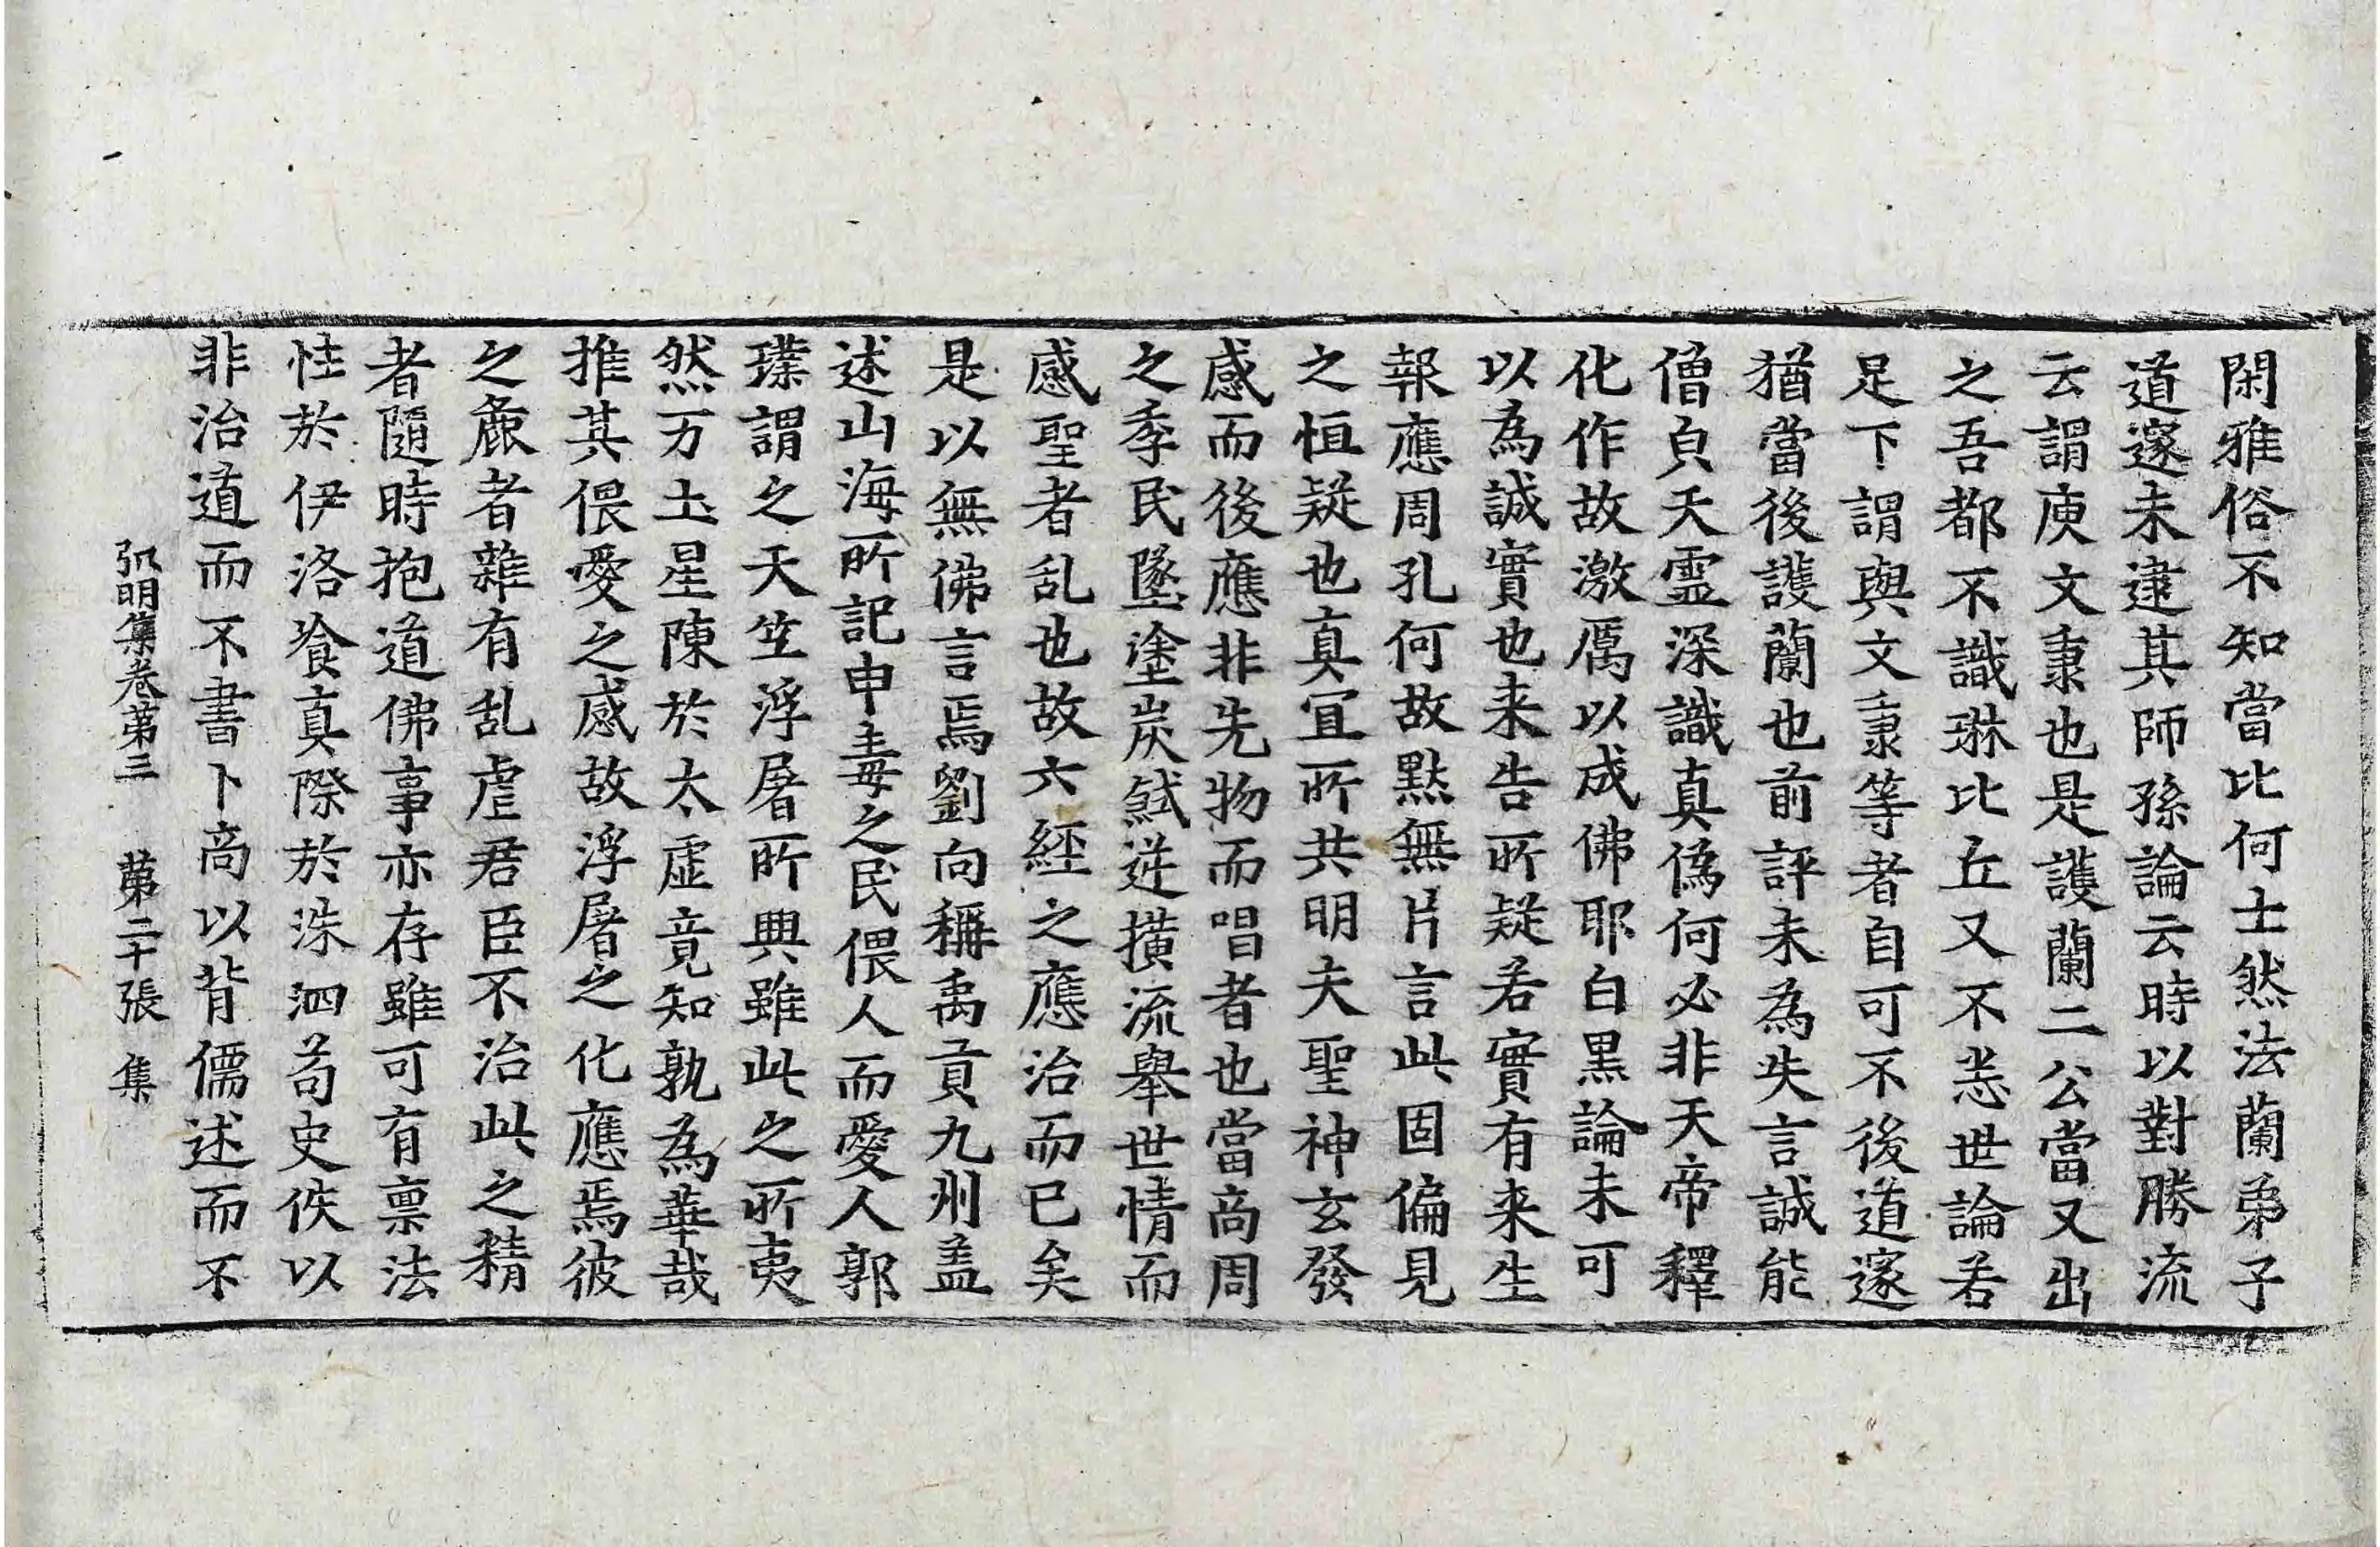 閑雅俗不知當比何士然法蘭弟子
道邃未逮其師孫論云時以對勝流
云謂庾文秉也是護蘭二公當又出
之吾都不識琳比丘又不悉世論若
足下謂與文秉等者自可不後道邃
猶當後護蘭也前評未為失言誠能
僧貟天靈深識真偽何必非天帝釋
化作故激厲以成佛耶白黑論未可
以為誠實也来告所疑若實有来生
報應周孔何故黙無片言此固偏見
之恒疑也真冝所共明夫聖神玄發
感而後應非先物而唱者也當商周
之季民墜塗炭弒逆撗流舉世情而
感聖者乱也故六經之應治而已矣
是以無佛言焉劉向稱禹貢九州盖
述山海所記申毒之民偎人而愛人郭
璞謂之天竺浮屠所興雖此之所夷
然万土星陳於太虛竟知孰為華哉
推其偎愛之感故浮屠之化應焉彼
之麁者雜有乱虐君臣不治此之精
者隨時抱道佛事亦存雖可有禀法
性於伊洛飡真際於洙泗苟史佚以
非治道而不書卜商以背儒述而不
弘明集卷苐三　苐二十張　集